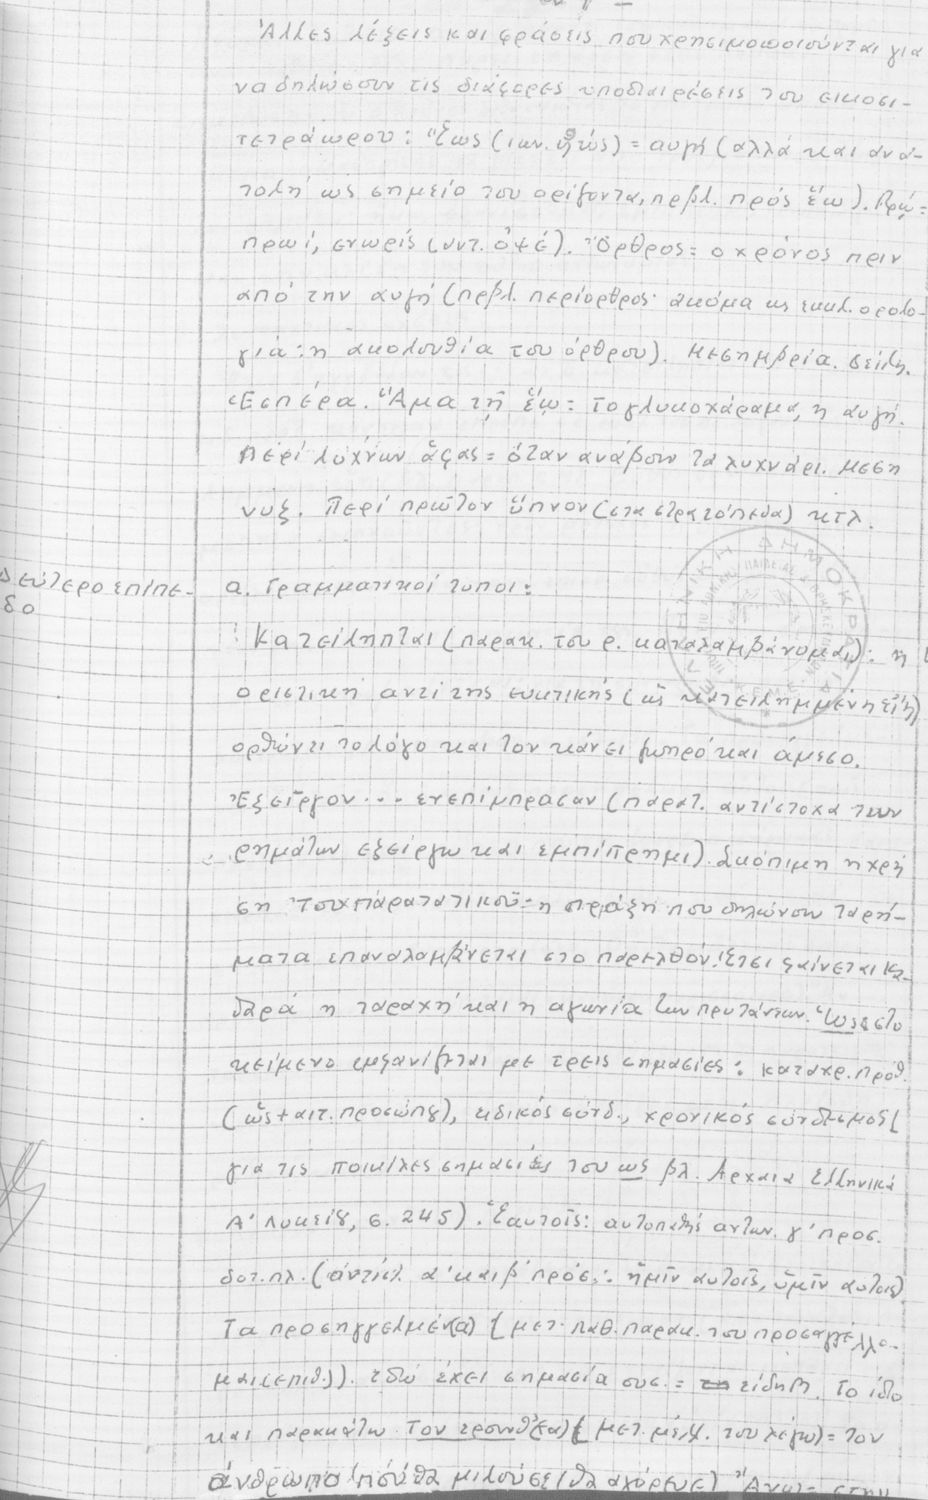 Άλλες λέξεις και φράσεις που χρησιμοποιούνται για
να δηλώσουν τις διάφορες υποδιαιρέσεις του εικοσι-
τετράωρου: Ἕως (ιων. ἠώς) = αυγή (αλλά και ανα-
τολή ως σημείο του ορίζοντα, πρβλ. πρός ἕω). Πρῴ =
πρωί, ενωρίς (αντ. ὀψέ). Ὄρθρος = ο χρόνος πριν
από την αυγή (πρβλ. περίορθρος· ακόμα κι εκκλ. ορολο-
γία: η ακολουθία του όρθρου). Μεσημβρία. Δείλη.
Ἑσπέρα. Ἅμα τῇ ἕῳ = το γλυκοχάραμα, η αυγή.
Περί λύχνων ἁφάς = όταν ανάβουν τα λυχνάρι. Μέση
νύξ. Περί πρῶτον ὕπνον (στα στρατόπεδα) κτλ.
Δεύτερο επίπε-
δο
α. Γραμματικοί τύποι:
Κατείληπται (παρακ. του ρ. καταλαμβάνομαι): η
οριστική αντί της ευκτικής (ὡς κατειλημμένη εἴη)
ορθώνει το λόγο και τον κάνει ζωηρό και άμεσο.
Ἐξεῖργον ... ἐνεπίμπρασαν (παρατ. αντίστοχα των
ρημάτων εξείργω και εμπίπρημι). Σκόπιμη η χρή
ση του παρατατικού: η πράξη που δηλώνουν τα ρή-
ματα επαναλαμβάνεται στο παρελθόν. Έτσι φαίνεται κα-
θαρά η ταραχή και η αγωνία των πρυτάνεων. Ὡς: στο
κείμενο εμφανίζεται με τρεις σημασίες: καταχρ. πρόθ.
(ὡς + αιτ. προσώπου), ειδικός σύνδ., χρονικός σύνδεσμος (
για τις ποικίλες σημασίες του ως βλ. Αρχαία Ελληνικά
Α' Λυκείου, σ. 245). Ἑαυτοῖς: αυτοπαθής αντων. γ' προσ.
δοτ. πλ. (αντίστ. α' και β' πρόσ.: ἡμῖν αὐτοῖς, ὑμῖν αὐτοῖς)
Τα προσηγγελμέν(α) (μετ. παθ. παρακ. του προσαγγέλλο-
μαι (επιθ.)). Εδώ έχει σημασία ουσ. = είδηση. Το ίδιο
και παρακάτω τον ἐροῦνθ(α) (μετ. μέλλ. του λέγω) = τον
άνθρωπο που θα μιλούσε (θα αγόρευε) Ἄνω = στην
ΕΛΛΗΝΙΚΗ ΔΗΜΟΚΡΑΤΙΑ